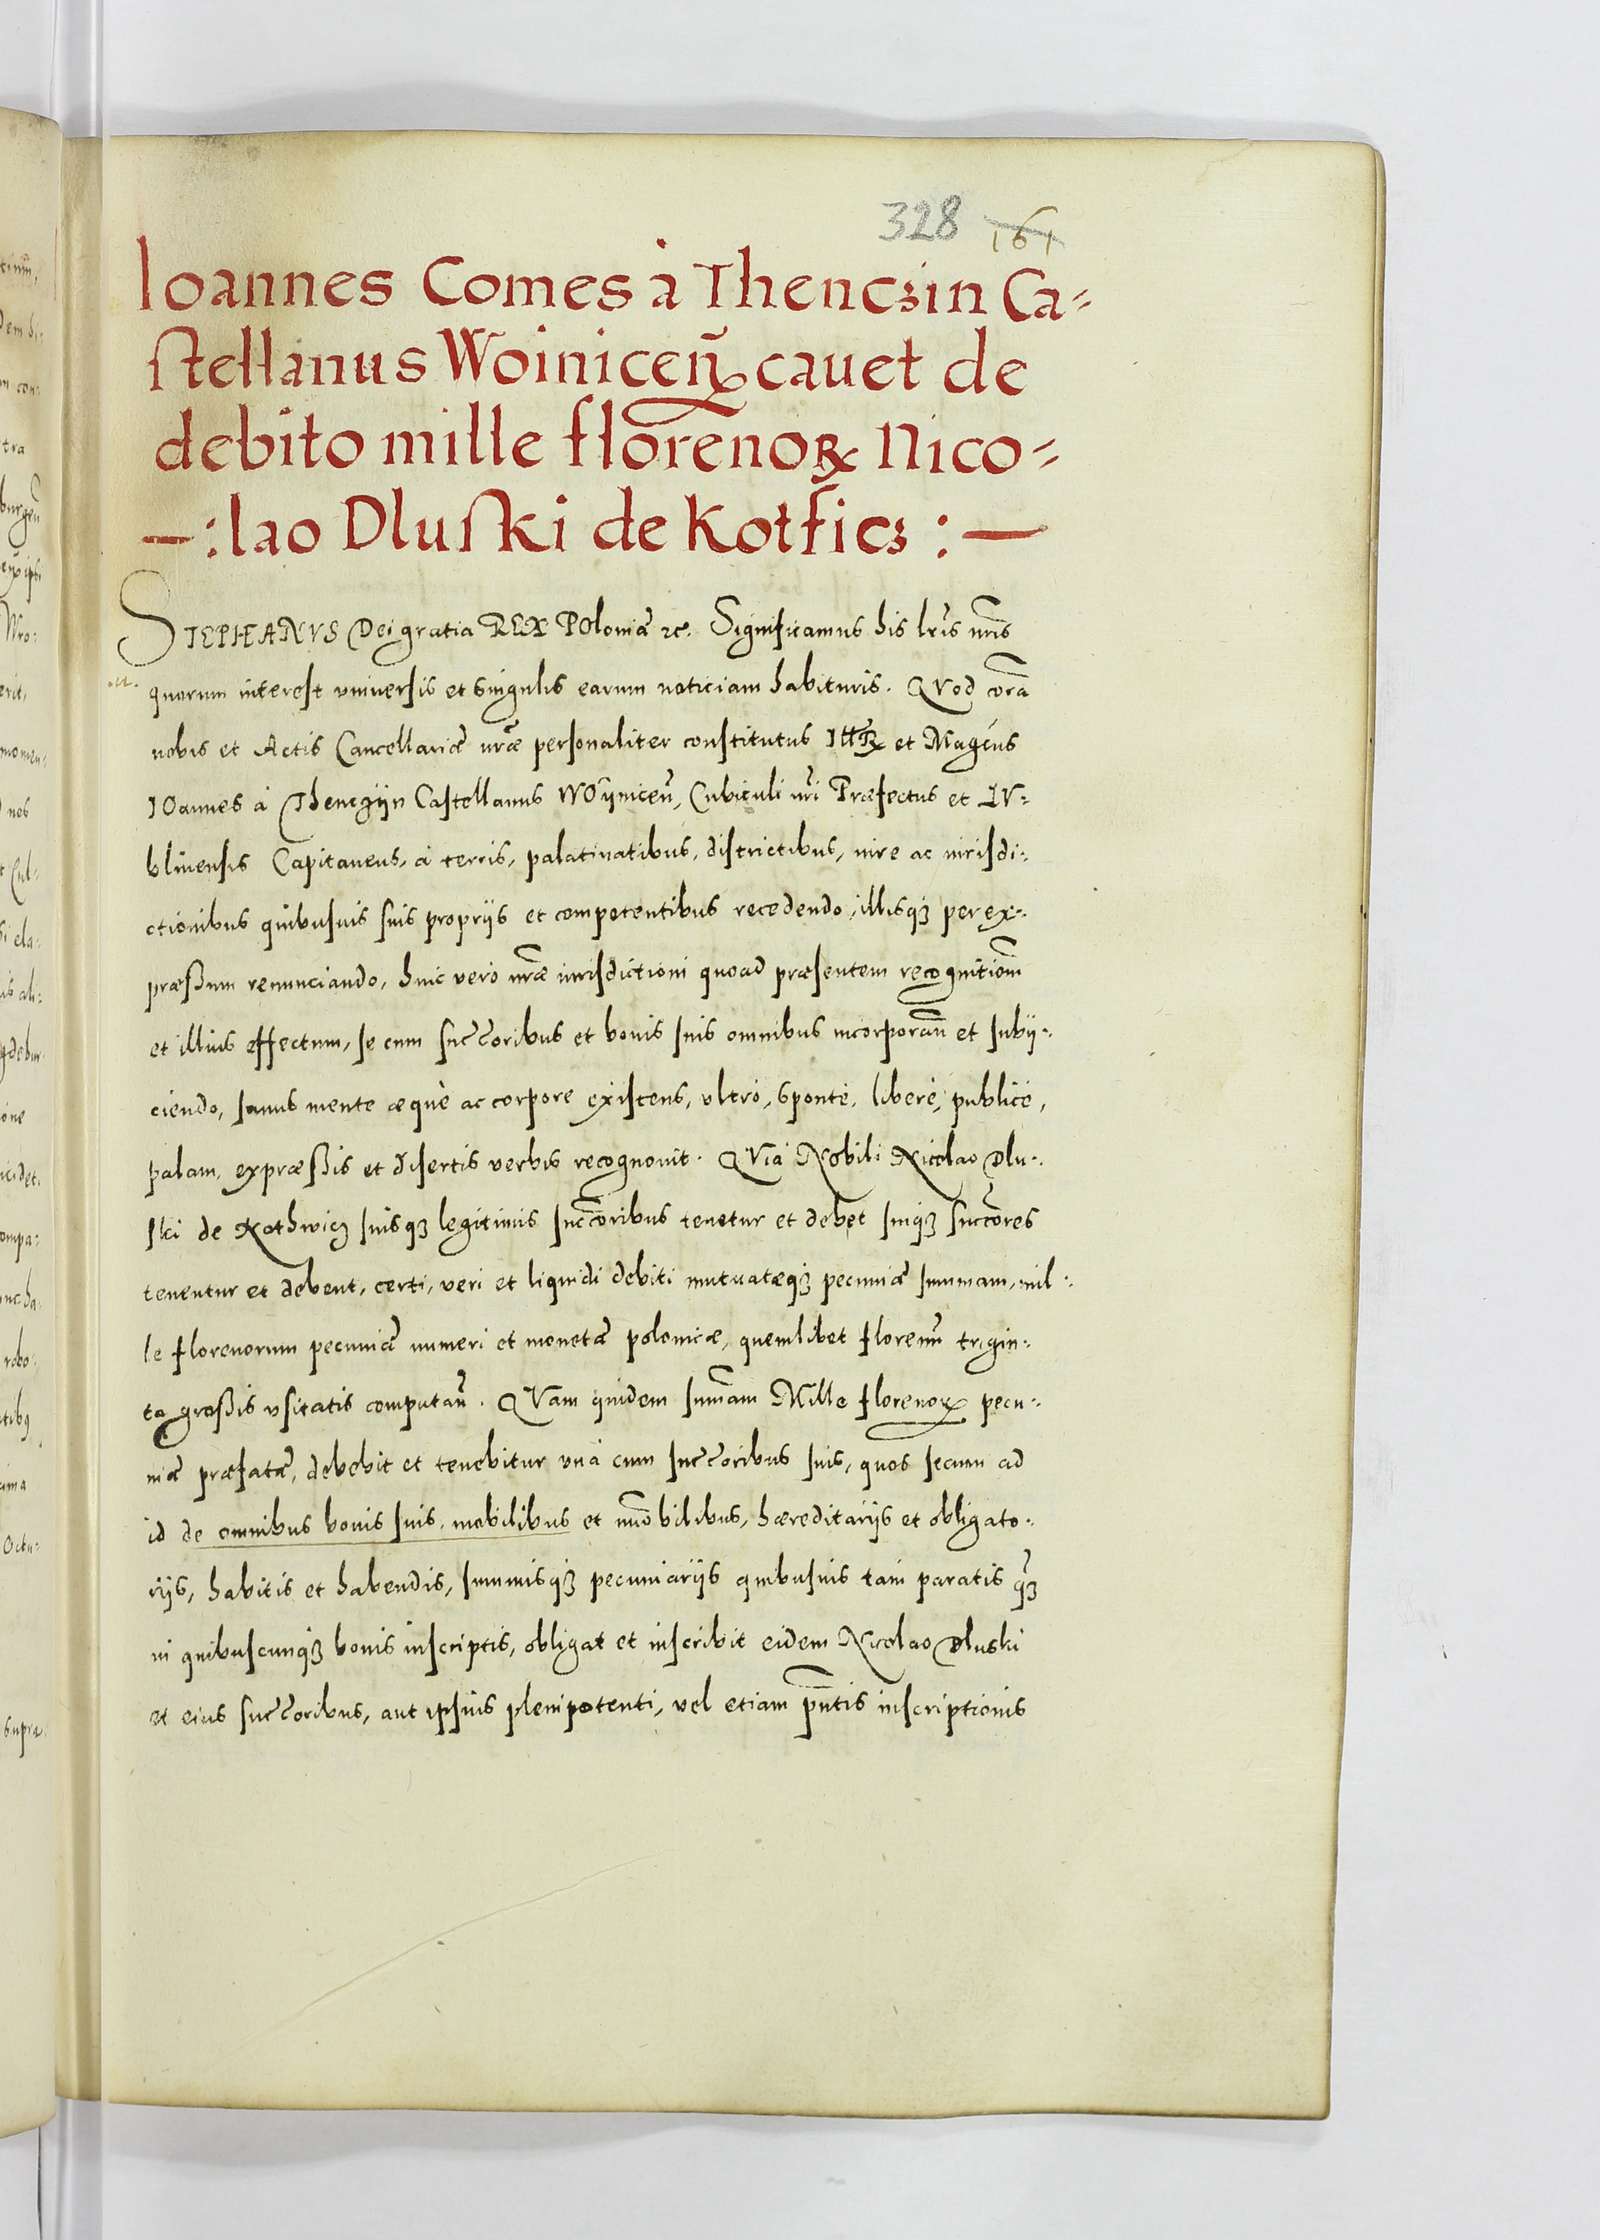 328 161
Ioannes Comes à Thenczin Ca-
stellanus Woiniceñ cauet de
debito mille florenoꝝ Nico-
—: lao Dluski de Kotficz : —
STEPHANVS Dei gratia REX POloniæ ꝛc. Significamus his lr̃is nr̃is
quorum interest vniuersis et singulis earum noticiam habituris. QVod corã
nobis et Actis Cancellariæ nr̃æ personaliter constitutus Illꝝ et Magcus
IOannes à Thenczijn Castellanus WOijniceñ, Cubiculi nr̃i Præfectus et LV-
blinensis Capitaneus, à terris, palatinatibus, districtibus, iure ac iurisdi-
ctionibus quibusuis suis proprijs et competentibus recedendo, illisqꝫ per ex-
præßum renunciando, huic vero nr̃æ iurisdictioni quoad præsentem recognitiom̃
et illius effectum, se cum succ̃oribus et bonis suis omnibus incorporan̄ et subij-
ciendo, sanus mente æquè ac corpore existens, vltrò, sponte, liberè, publicè,
palam, expræßis et disertis verbis recognouit. QVia Nobili Nicolao Dlu-
ski de Kothwicz suisqꝫ legitimis succ̃oribus tenetur et debet suiqꝫ succ̃ores
tenentur et debent, certi, veri et liquidi debiti mutuatæqꝫ pecuniæ summam, mil-
le florenorum pecuniæ numeri et monetæ polonicæ, quemlibet florenũ trigin-
ta großis vsitatis computan̄. QVam quidem sum̃am Mille florenoꝝ pecu-
niæ præfatæ, debebit et tenebitur vnà cum succ̃oribus suis, quos secum ad
id de omnibus bonis suis, mobilibus et im̃obilibus, hæreditarijs et obligato-
rijs, habitis et habendis, summisqꝫ pecuniarijs quibusuis tam paratis qꝫ̃
in quibuscunqꝫ bonis inscriptis, obligat et inscribit eidem Nicolao Dluski
et eius succ̃oribus, aut ipsius plenipotenti, vel etiam pñtis inscriptionis